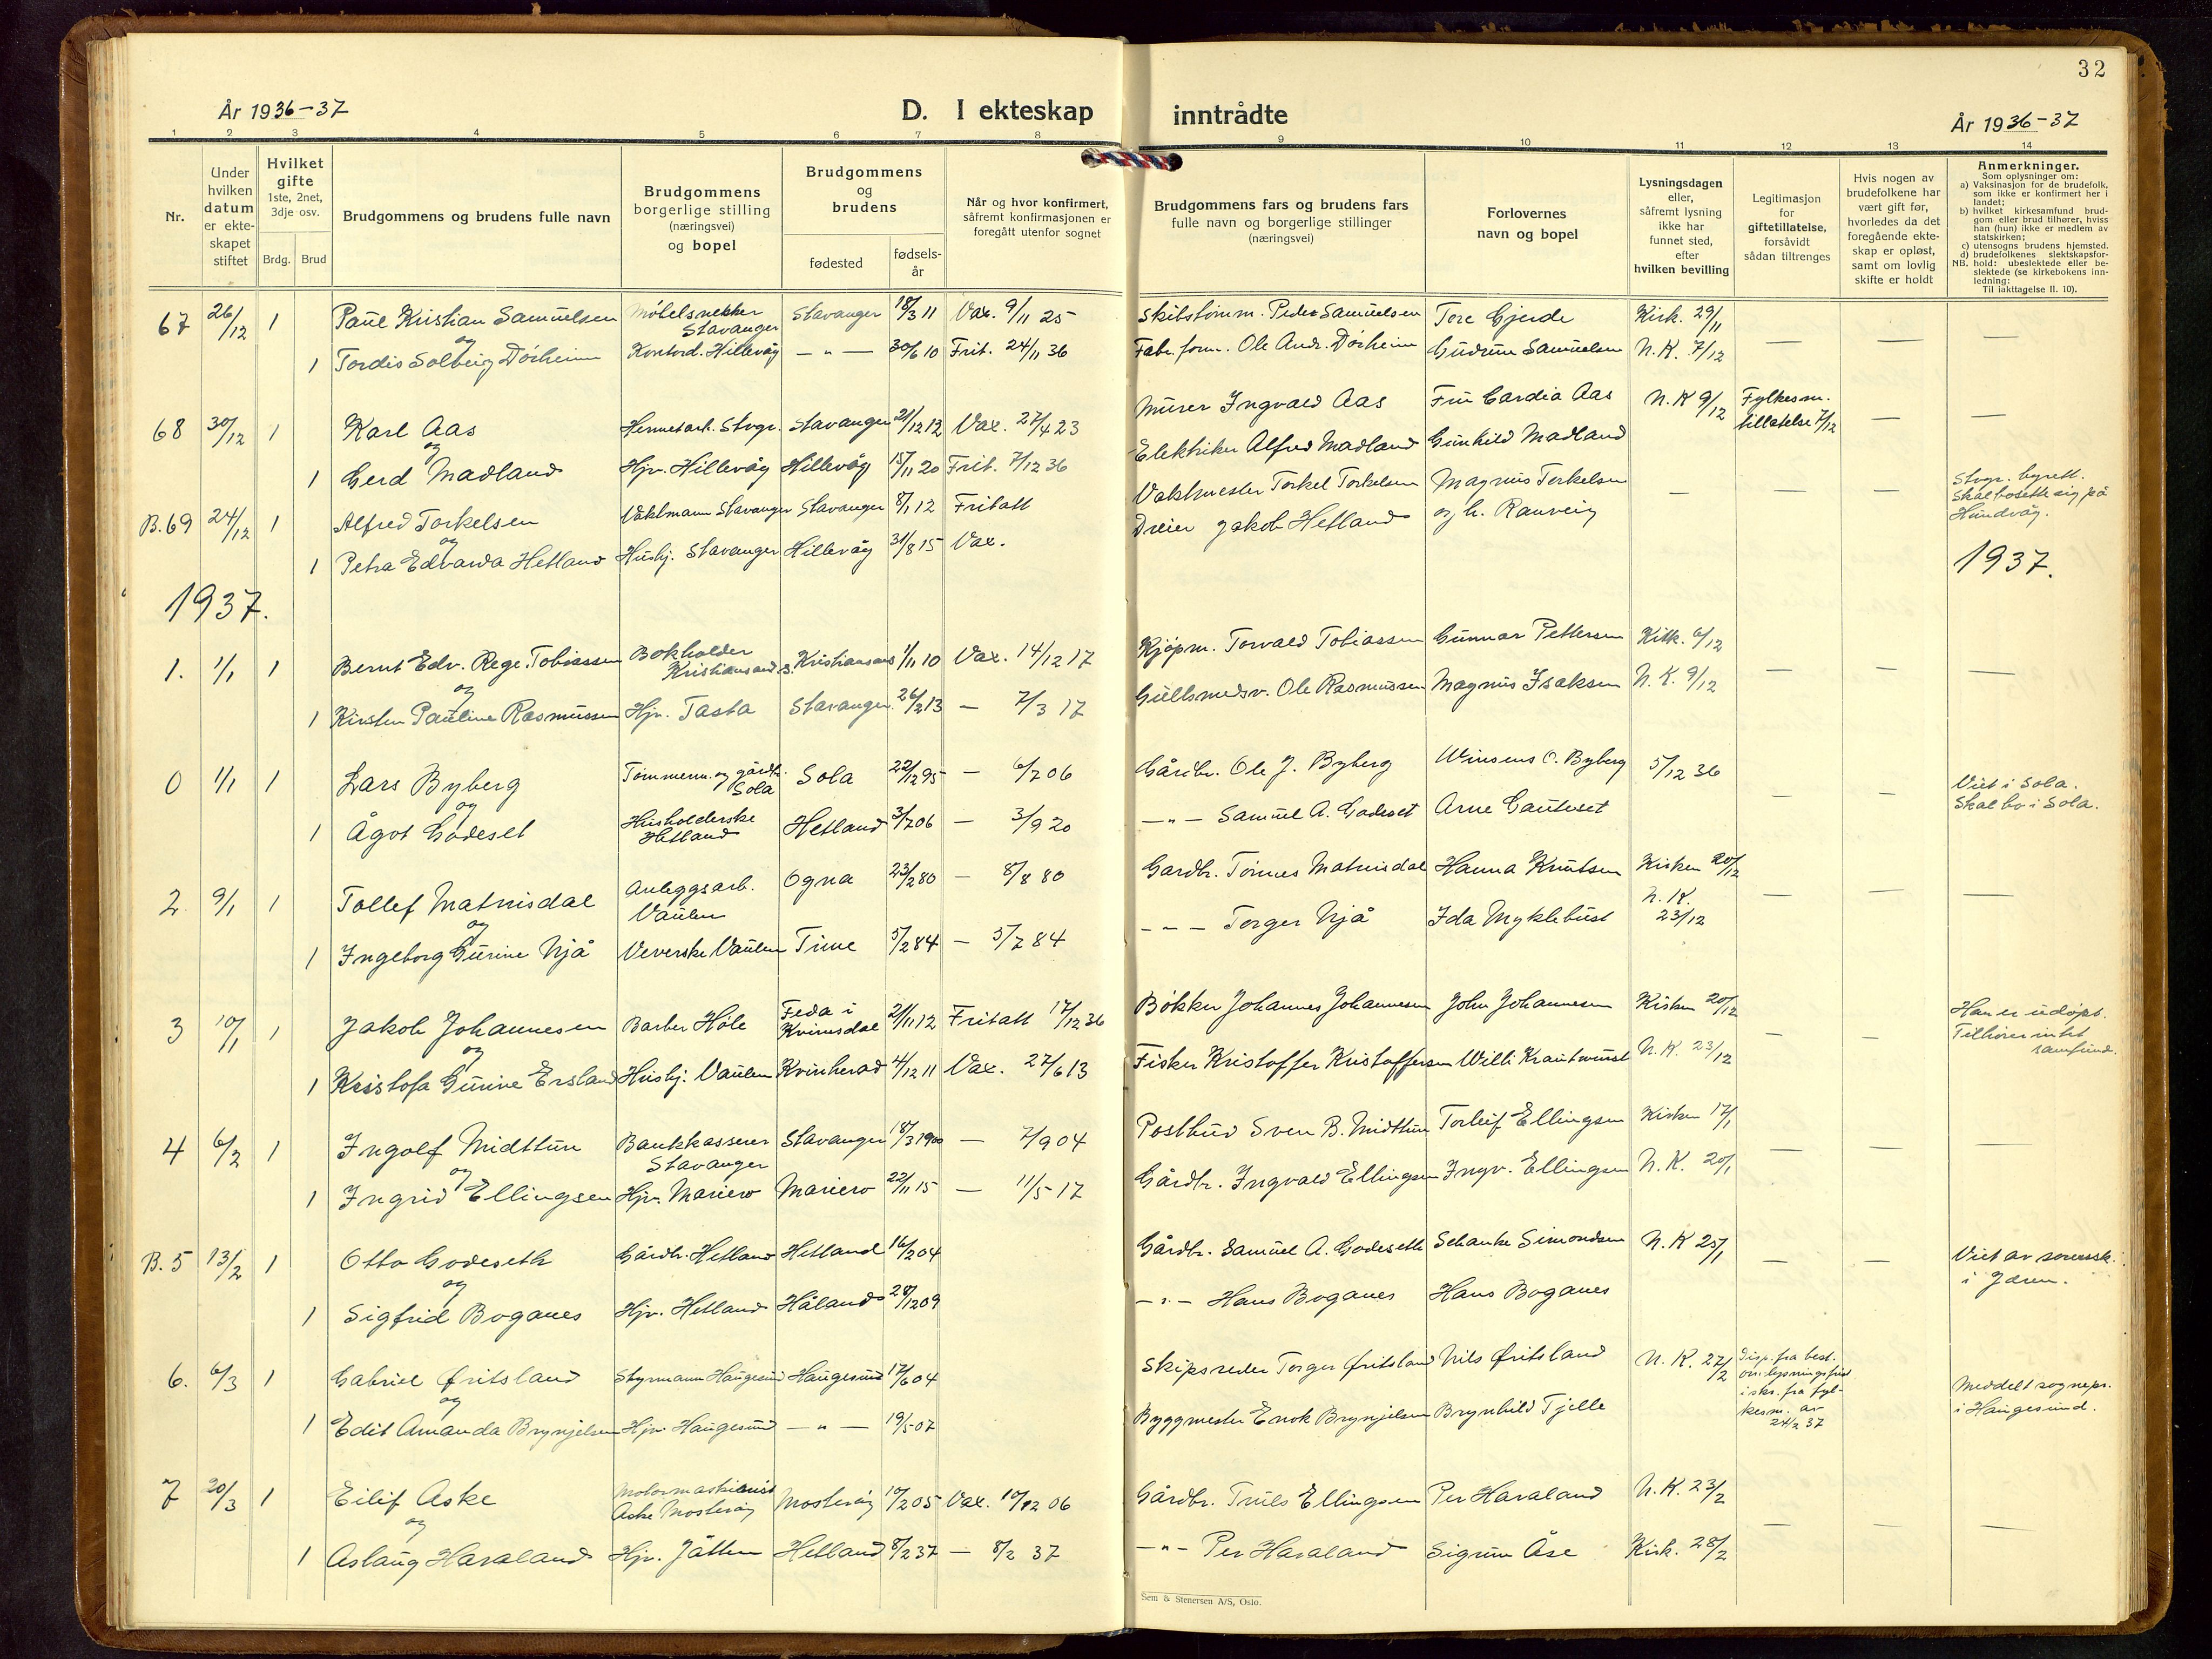 32
År 1936-37
D. I ekteskap inntrådte
År 1936-37
1 2 3 4 5 6 7 8 9 10 11 12 13 14
Nr.
Under
hvilken
datum
er ekte-
skapet
stiftet
Hvilket
gifte
1ste, 2net,
3dje osv.
Brdg. Brud
Brudgommens og brudens fulle navn
Brudgommens
borgerlige stilling
(næringsvei)
og bopel
Brudgommens
og
brudens
fødested
fødsels-
år
Når og hvor konfirmert,
såfremt konfirmasjonen er
foregått utenfor sognet
Brudgommens fars og brudens fars
fulle navn og borgerlige stillinger
(næringsvei)
Forlovernes
navn og bopel
Lysningsdagen
eller,
såfremt lysning
ikke har
funnet sted,
efter
hvilken bevilling
Legitimasjon
for
giftetillatelse,
forsåvidt
sådan tiltrenges
Hvis nogen av
brudefolkene har
vært gift før,
hvorledes da det
foregående ekte-
skap er opløst,
samt om lovlig
skifte er holdt
Anmerkninger.
Som oplysninger om:
a) Vaksinasjon for de brudefolk,
som ikke er konfirmert her i
landet;
b) hvilket kirkesamfund brud-
gom eller brud tilhører, hviss
han (hun) ikke er medlem av
statskirken;
c) utensogns brudens hjemsted.
d) brudefolkenes slektskapsfor-
NB. hold: ubeslektede eller be-
slektede (se kirkebokens inn-
ledning:
Til iakttagelse II. 10).
67 26/12 1 Paul Kristian Samuelsen Møbelsnekker Stavanger Stavanger 18/3 11 Vax. 9/11 25 Skibstømm. Peder Samuelsen Tore Gjerde Kirk. 29/11 — — —
og
1 Tordis Solbeig Dørheim Kontord. Hillevåg — " — 30/6 10 Frit. 24/11 36 Fabr.form. Ole Andr. Dørheim Gudrun Samuelsen N.K. 7/12
68 30/12 1 Karl Aas Hermetarb. Stvgr. Stavanger 21/12 12 Vax. 27/4 23 Murer Ingvald Aas Fru Cardia Aas N.K 9/12 Fylkesm. tillatelse 7/12 — —
og
1 Gerd Madland Hjv. Hillevåg Hillevåg 15/11 20 Frit. 7/12 36 Elektriker Alfred Madland Gunhild Madland
B.69 24/12 1 Alfred Torkelsen Vaktmann Stavanger Stavanger 8/1 12 Fritatt Vaktmester Torkel Torkelsen Magnus Torkelsen — — — Stvgr. byrett. Skal bosette sig på Hundvåg.
og
1 Petra Edvarda Hetland Hushj. Stavanger Hillevåg 31/8 15 Vax. Dreier Jakob Hetland og h. Ranveig
1937. 1937.
1. 1/1 1 Bernt Edv. Rege Tobiassen Bokholder Kristiansand S. Kristiansand 1/11 10 Vax. 14/12 17 Kjøpm. Torvald Tobiassen Gunnar Pettersen Kirk. 6/12 — — —
og
1 Kirsten Pauline Rasmussen Hjv. Tasta Stavanger 26/2 13 — 7/3 17 Gullsmedsv. Ole Rasmussen Magnus Isaksen N.K. 9/12
0 1/1 1 Lars Byberg Tømmerm. og gårdbr. Sola Sola 22/12 95 — 6/7 06 Gårdbr. Ole J. Byberg Winsens O. Byberg 5/12 36 — — Viet i Sola. Skal bo i Sola.
og
1 Ågot Godeset Husholderske Hetland Hetland 3/7 06 — 3/9 20 — " — Samuel A. Godeset Arne Gauteset
2 9/1 1 Tollef Matnisdal Anleggsarb. Vaulen Ogna 23/2 80 — 8/8 80 Gardbr. Tørnes Matnisdal Hanna Knutsen Kirken 20/12 — — —
og
1 Ingeborg Gurine Njå Veverske Vaulen Time 5/2 84 — 5/7 84 — " — Torger Njå Ida Myklebust N.K. 23/12
3 10/1 1 Jakob Johannesen Barber Høle Feda i Kvinesdal 21/11 12 Fritatt 17/12 36 Bøkker Johannes Johannesen John Johannesen Kirken 20/12 — — Han er udøpt. Tilhører intet samfund.
og
1 Kristofa Gurine Ersland Hushj. Vaulen Kvinherad 4/12 11 Vax. 27/6 13 Fisker Kristoffer Kristoffersen Willi Krautwurst N.K. 23/12
4 6/2 1 Ingolf Midttun Bankkasserer Stavanger Stavanger 18/3 1900 — 7/9 04 Postbud Sven B. Midttun Torleif Ellingsen Kirken 17/1 — — —
og
1 Ingrid Ellingsen Hjv. Mariero Mariero 22/11 15 — 11/5 17 Gårdbr. Ingvald Ellingsen Ingv. Ellingsen N.K. 20/1
B.5 13/2 1 Otto Godeseth Gårdbr. Hetland Hetland 16/2 04 Gårdbr. Samuel A. Godeseth Schanke Simondsen N.K 25/1 — — Viet av sorenssk. i Jæren.
og
1 Sigfrid Boganes Hjv. Hetland Håland 28/12 09 — " — Hans Boganes Hans Boganes
6. 6/3 1 Gabriel Øritsland Styrmann Haugesund Haugesund 17/6 04 Skipsreder Torger Øritsland Nils Øritsland N.K. 27/2 Disp. fra best. om lysningsfrist i skr. fra fyl- kesm. av 24/2 37 Meddelt sognepr. i Haugesund.
og
1 Edit Amanda Brynjelsen Hjv. Haugesund — " — 19/5 07 Byggmester Enok Brynjelsen Brynhild Tjelle
7 20/3 1 Eilif Aske Motormaskinist Aske Mosterøy Mosterøy 10/2 05 Vax. 10/12 06 Gårdbr. Truls Ellingsen Per Haraland N.K. 23/2 — — —
og
1 Aslaug Haraland Hjv. Jåtten Hetland 8/2 37 — 8/2 37 — " — Per Haraland Sigrun Åse Kirk. 28/2
Sem & Stenersen A/S, Oslo.